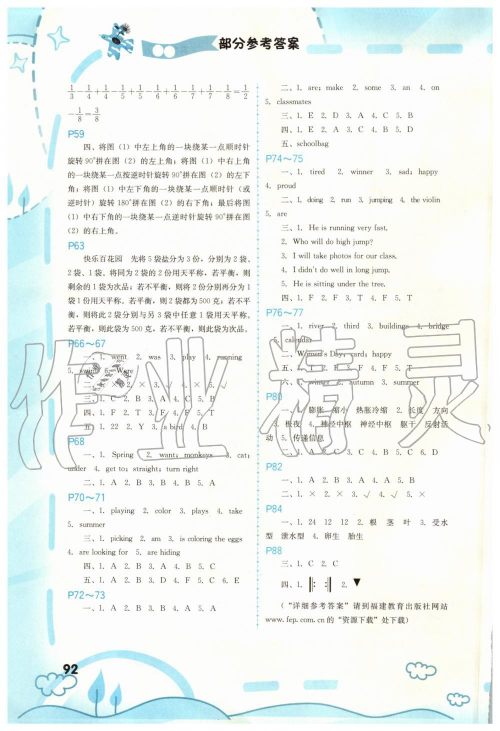 部分参考答案
1/3-1/4+1/4-1/5+1/5-1/6+1/6-1/7+1/7-1/8=1/2
-1/8=3/8
P59
四、将图（1）中左上角的一块绕某一点顺时针
旋转90°拼在图（2）的左上角；将图（1）中右上角
的一块绕某一点按逆时针旋转90°拼在图（2）的左下
角；将图（1）中左下角的一块绕某一点顺时针（或
逆时针）旋转180°拼在图（2）的右下角；最后将图
（1）中右下角的一块绕某一点逆时针旋转90°拼在图
（2）的右上角。
P63
快乐百花园 先将5袋盐分为3份，分别为2袋、
2袋、1袋。将同为2袋的2份用天平称，若平衡，则
剩余的1袋为次品；若不平衡，则将2份分别再分为1
袋1份用天平称。若平衡，则2袋都为500克；若不平
衡，则将此2袋分别与另3袋中任意1袋用天平称。
若平衡，则此袋为500克，若不平衡，则此袋为次品。
P66～67
一、1. went 2. was 3. play 4. running
三、1. C 2. B 3. A 4. C 5. B
四、1. F 2. T 3. F 4. T 5. F
五、1. 22 2. Y 3. a bird 4. B
P68
一、1. Spring 2. want; monkeys 3. cat;
under 4. get to; straight; turn right
二、1. A 2. B 3. B 4. A 5. B
P70～71
一、1. playing 2. color 3. plays 4. take
5. summer
三、1. picking 2. am 3. is coloring the eggs
4. are looking for 5. are hiding
四、1. A 2. B 3. A 4. B 5. C
五、1. A 2. B 3. D 4. F 5. C 6. E
P72～73
一、1. A 2. B 3. B 4. A 5. A
二、1. are; make 2. some 3. an 4. on
5. classmates
三、1. E 2. D 3. A 4. C 5. B
四、1. E 2. A 3. C 4. B 5. D
五、schoolbag
P74～75
一、1. tired 2. winner 3. sad; happy
4. proud
二、1. doing 2. run 3. jumping 4. the violin
5. are
三、1. He is running very fast.
2. Who will do high jump?
3. I will take photos for our class.
4. I didn't do well in long jump.
5. He is sitting under the tree.
四、1. F 2. F 3. T 4. F 5. T
P76～77
一、1. river 2. third 3. buildings 4. bridge
5. calendar
二、Women's Day; card; happy
五、1. winter 2. autumn 3. summer
P80
一、1. 膨胀 缩小 热胀冷缩 2. 长度 方向
3. 极夜 4. 神经中枢 神经中枢 躯干 反射活
动 5. 传递信息
P82
二、1. A 2. B
三、1. × 2. × 3. √ 4. √ 5. ×
P84
一、1. 24 12 12 2. 根 茎 叶 3. 受水
型 泄水型 4. 卵生 胎生
P88
三、1. C 2. C
四、1. 𝄆 𝄇 2. ▼
（“详细参考答案”请到福建教育出版社网站
www.fep.com.cn的“资源下载”处下载）
92
作业精灵